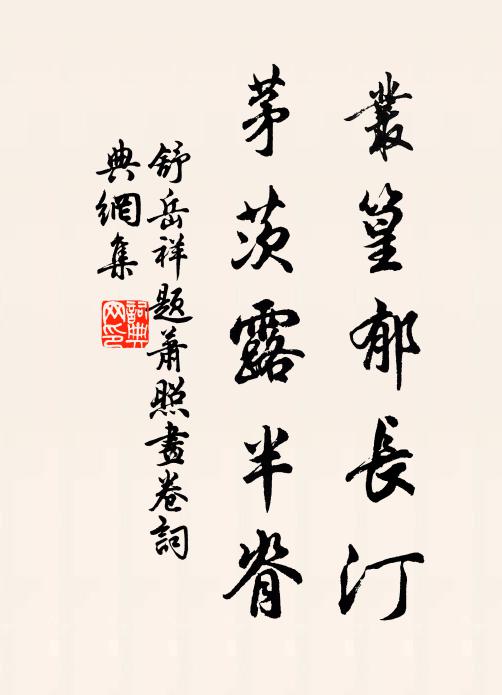 叢篁郁長汀
茅茨露半脊
舒岳祥題蕭照畫卷詞
典網集
詞典網印